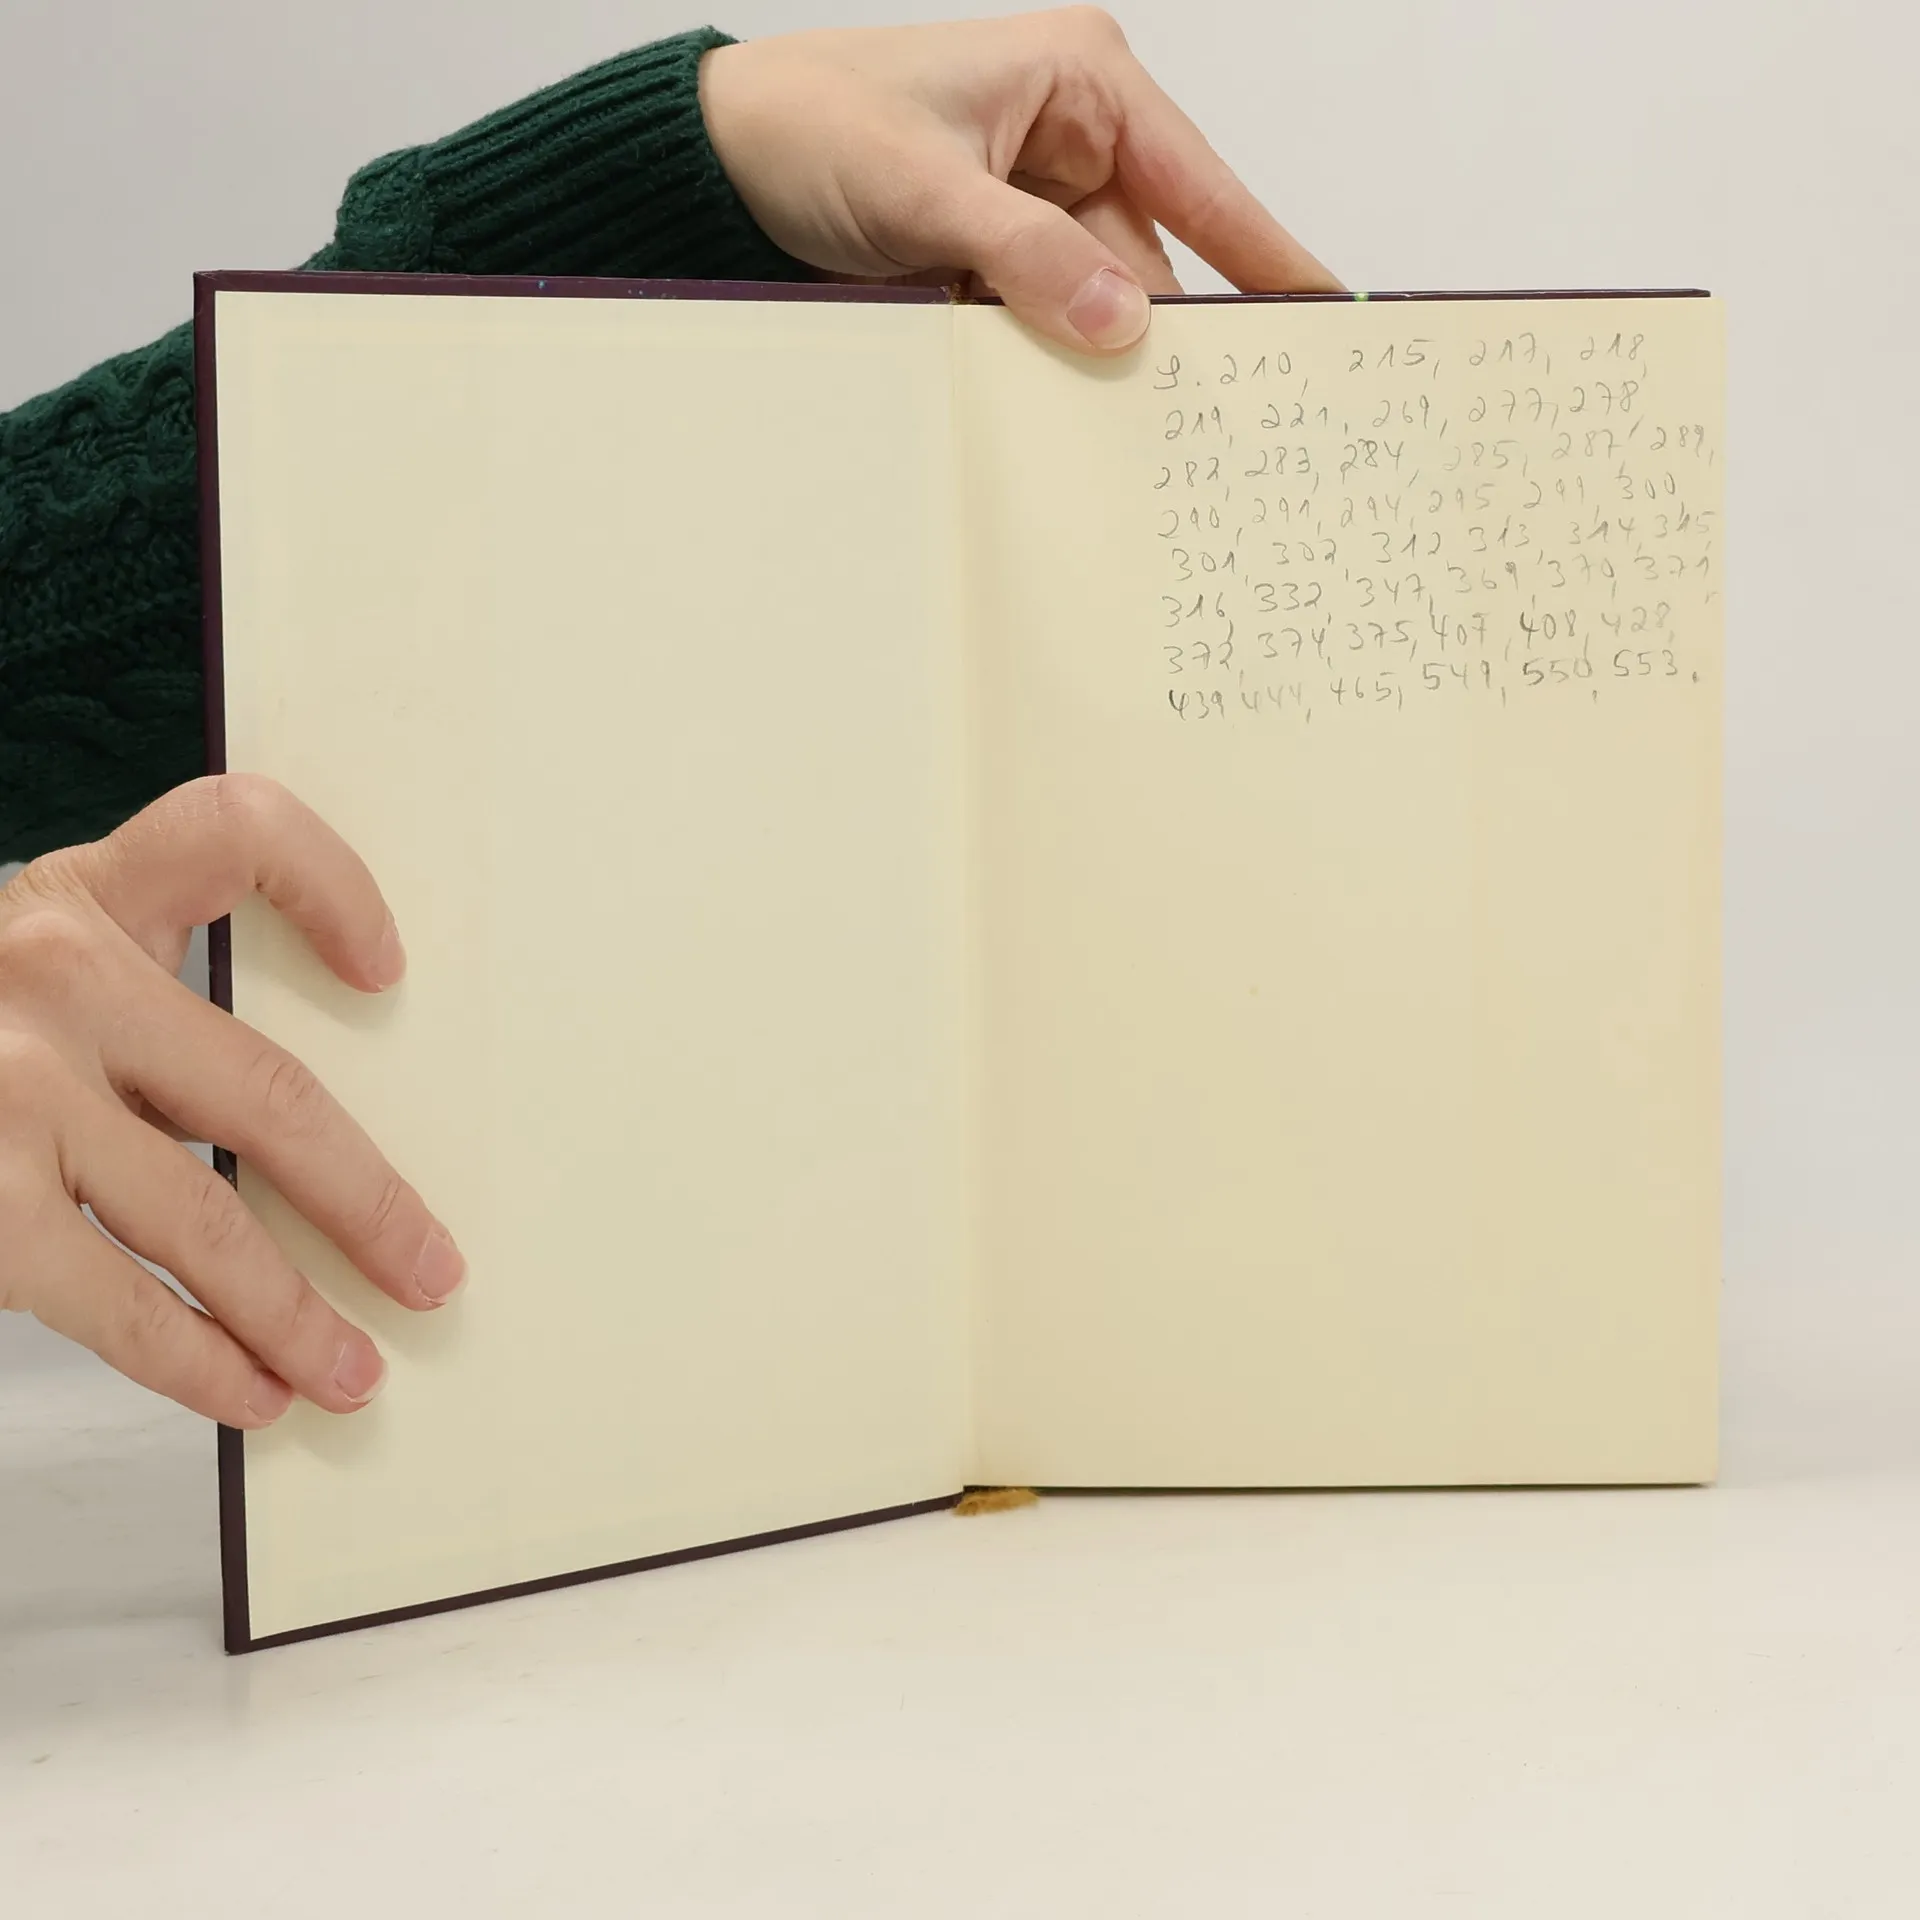 S. 210, 215, 217, 218,
219, 221, 269, 277, 278,
282, 283, 284, 285, 287, 289,
290, 291, 294, 295, 299, 300,
301, 302, 312, 313, 314, 315,
316, 332, 347, 369, 370, 371,
372, 374, 375, 407, 408, 428,
439, 444, 465, 549, 550, 553.